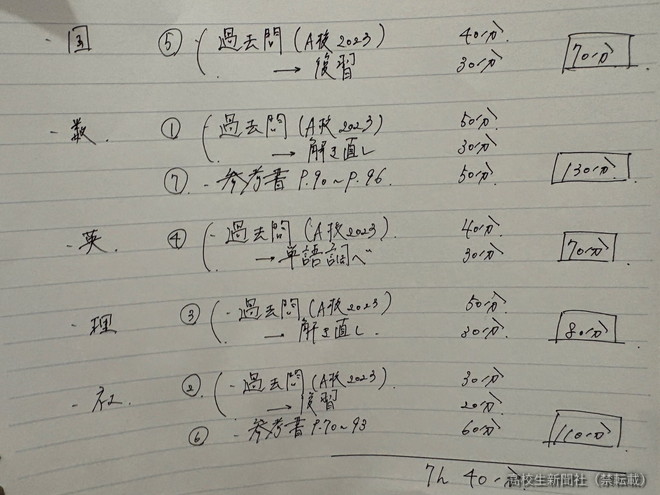 ・国 ⑤ ・過去問 (A校 2023) 40分
→ 復習 30分 70分
・数 ① ・過去問 (A校 2023) 50分
→ 解き直し 30分
⑦ ・参考書 P.90～P.96 50分 130分
・英 ④ ・過去問 (A校 2023) 40分
→ 単語調べ 30分 70分
・理 ③ ・過去問 (A校 2023) 50分
→ 解き直し 30分 80分
・社 ② ・過去問 (A校 2023) 30分
→ 復習 20分
⑥ ・参考書 P.70～93 60分 110分
7h 40分
高校生新聞社（禁転載）